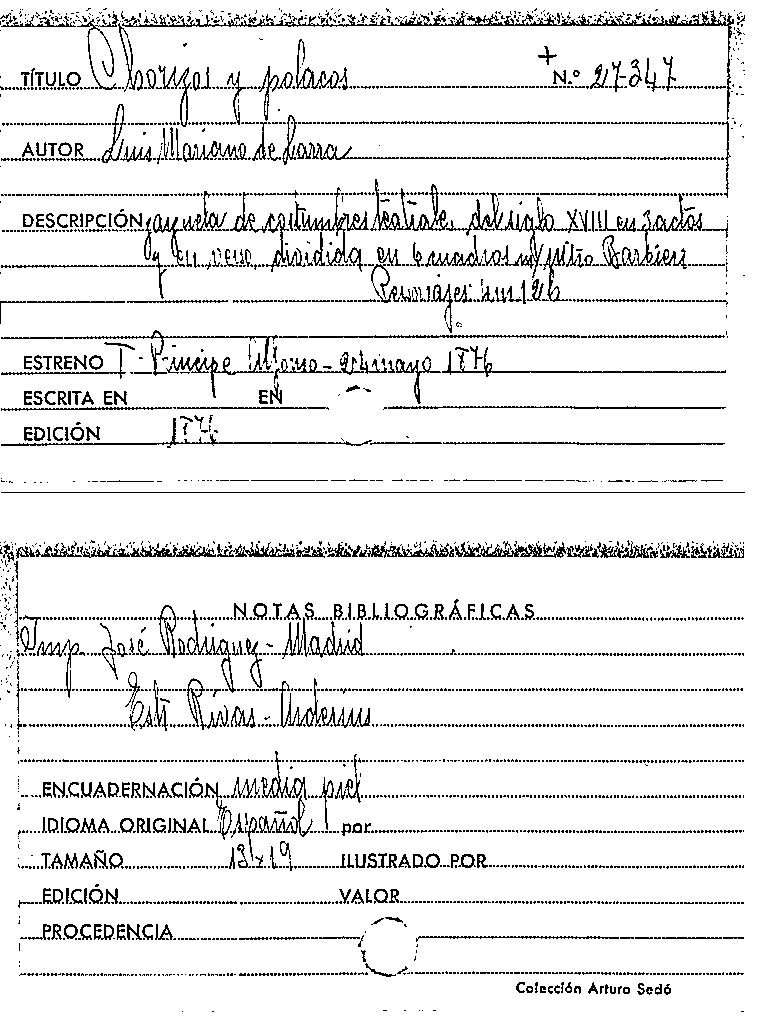 TÍTULO Chorizos y polacos + N.º 27-347
AUTOR Luis Mariano de Larra
DESCRIPCIÓN zarzuela de costumbres teatrales, del siglo XVIII en 3 actos
y en verso, dividida en 6 cuadros Barbieri
Personajes
ESTRENO T. Príncipe Alfonso - 24 mayo 1876
ESCRITA EN EN
EDICIÓN 1876
NOTAS BIBLIOGRÁFICAS
Imp. José Rodriguez - Madrid
Rivas - Arderius
ENCUADERNACIÓN media piel
IDIOMA ORIGINAL Español por
TAMAÑO 13x19 ILUSTRADO POR
EDICIÓN VALOR
PROCEDENCIA
Colección Arturo Sedó